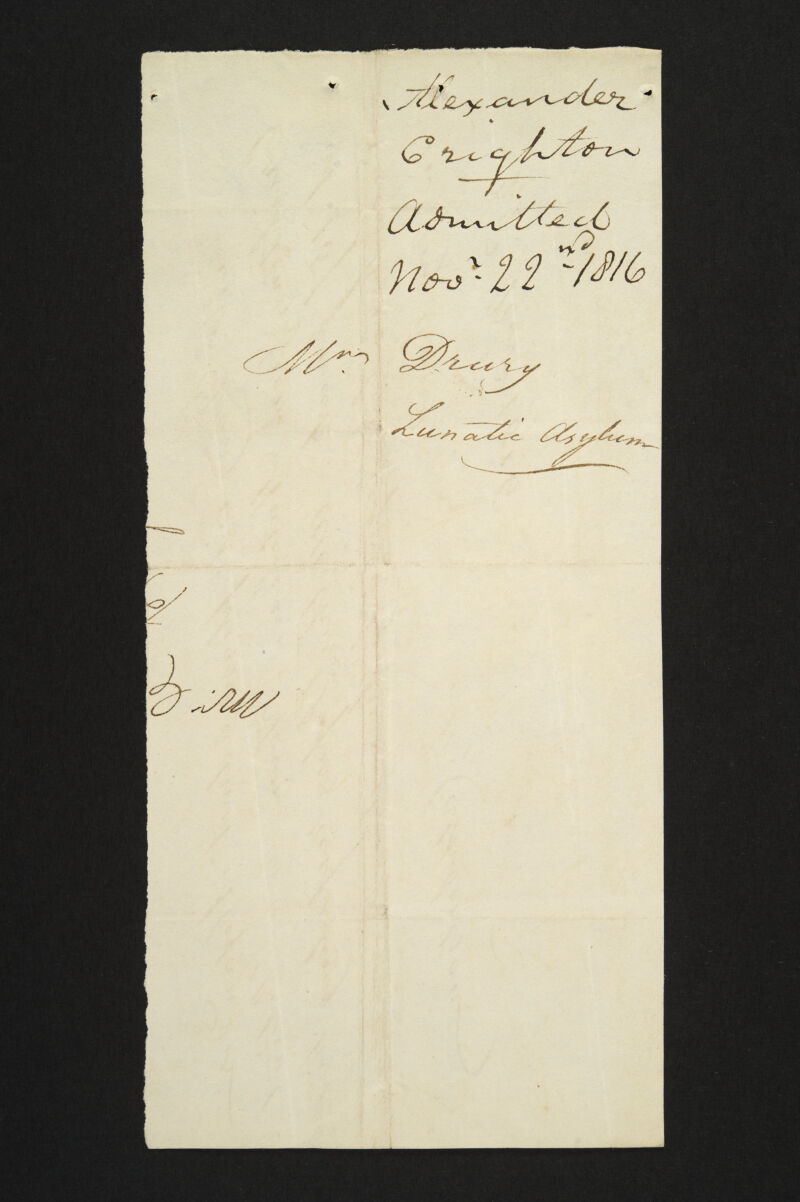 Alexander
Crighton
Admitted
Novr. 22nd 1816
Mrs. Drury
Lunatic Asylum